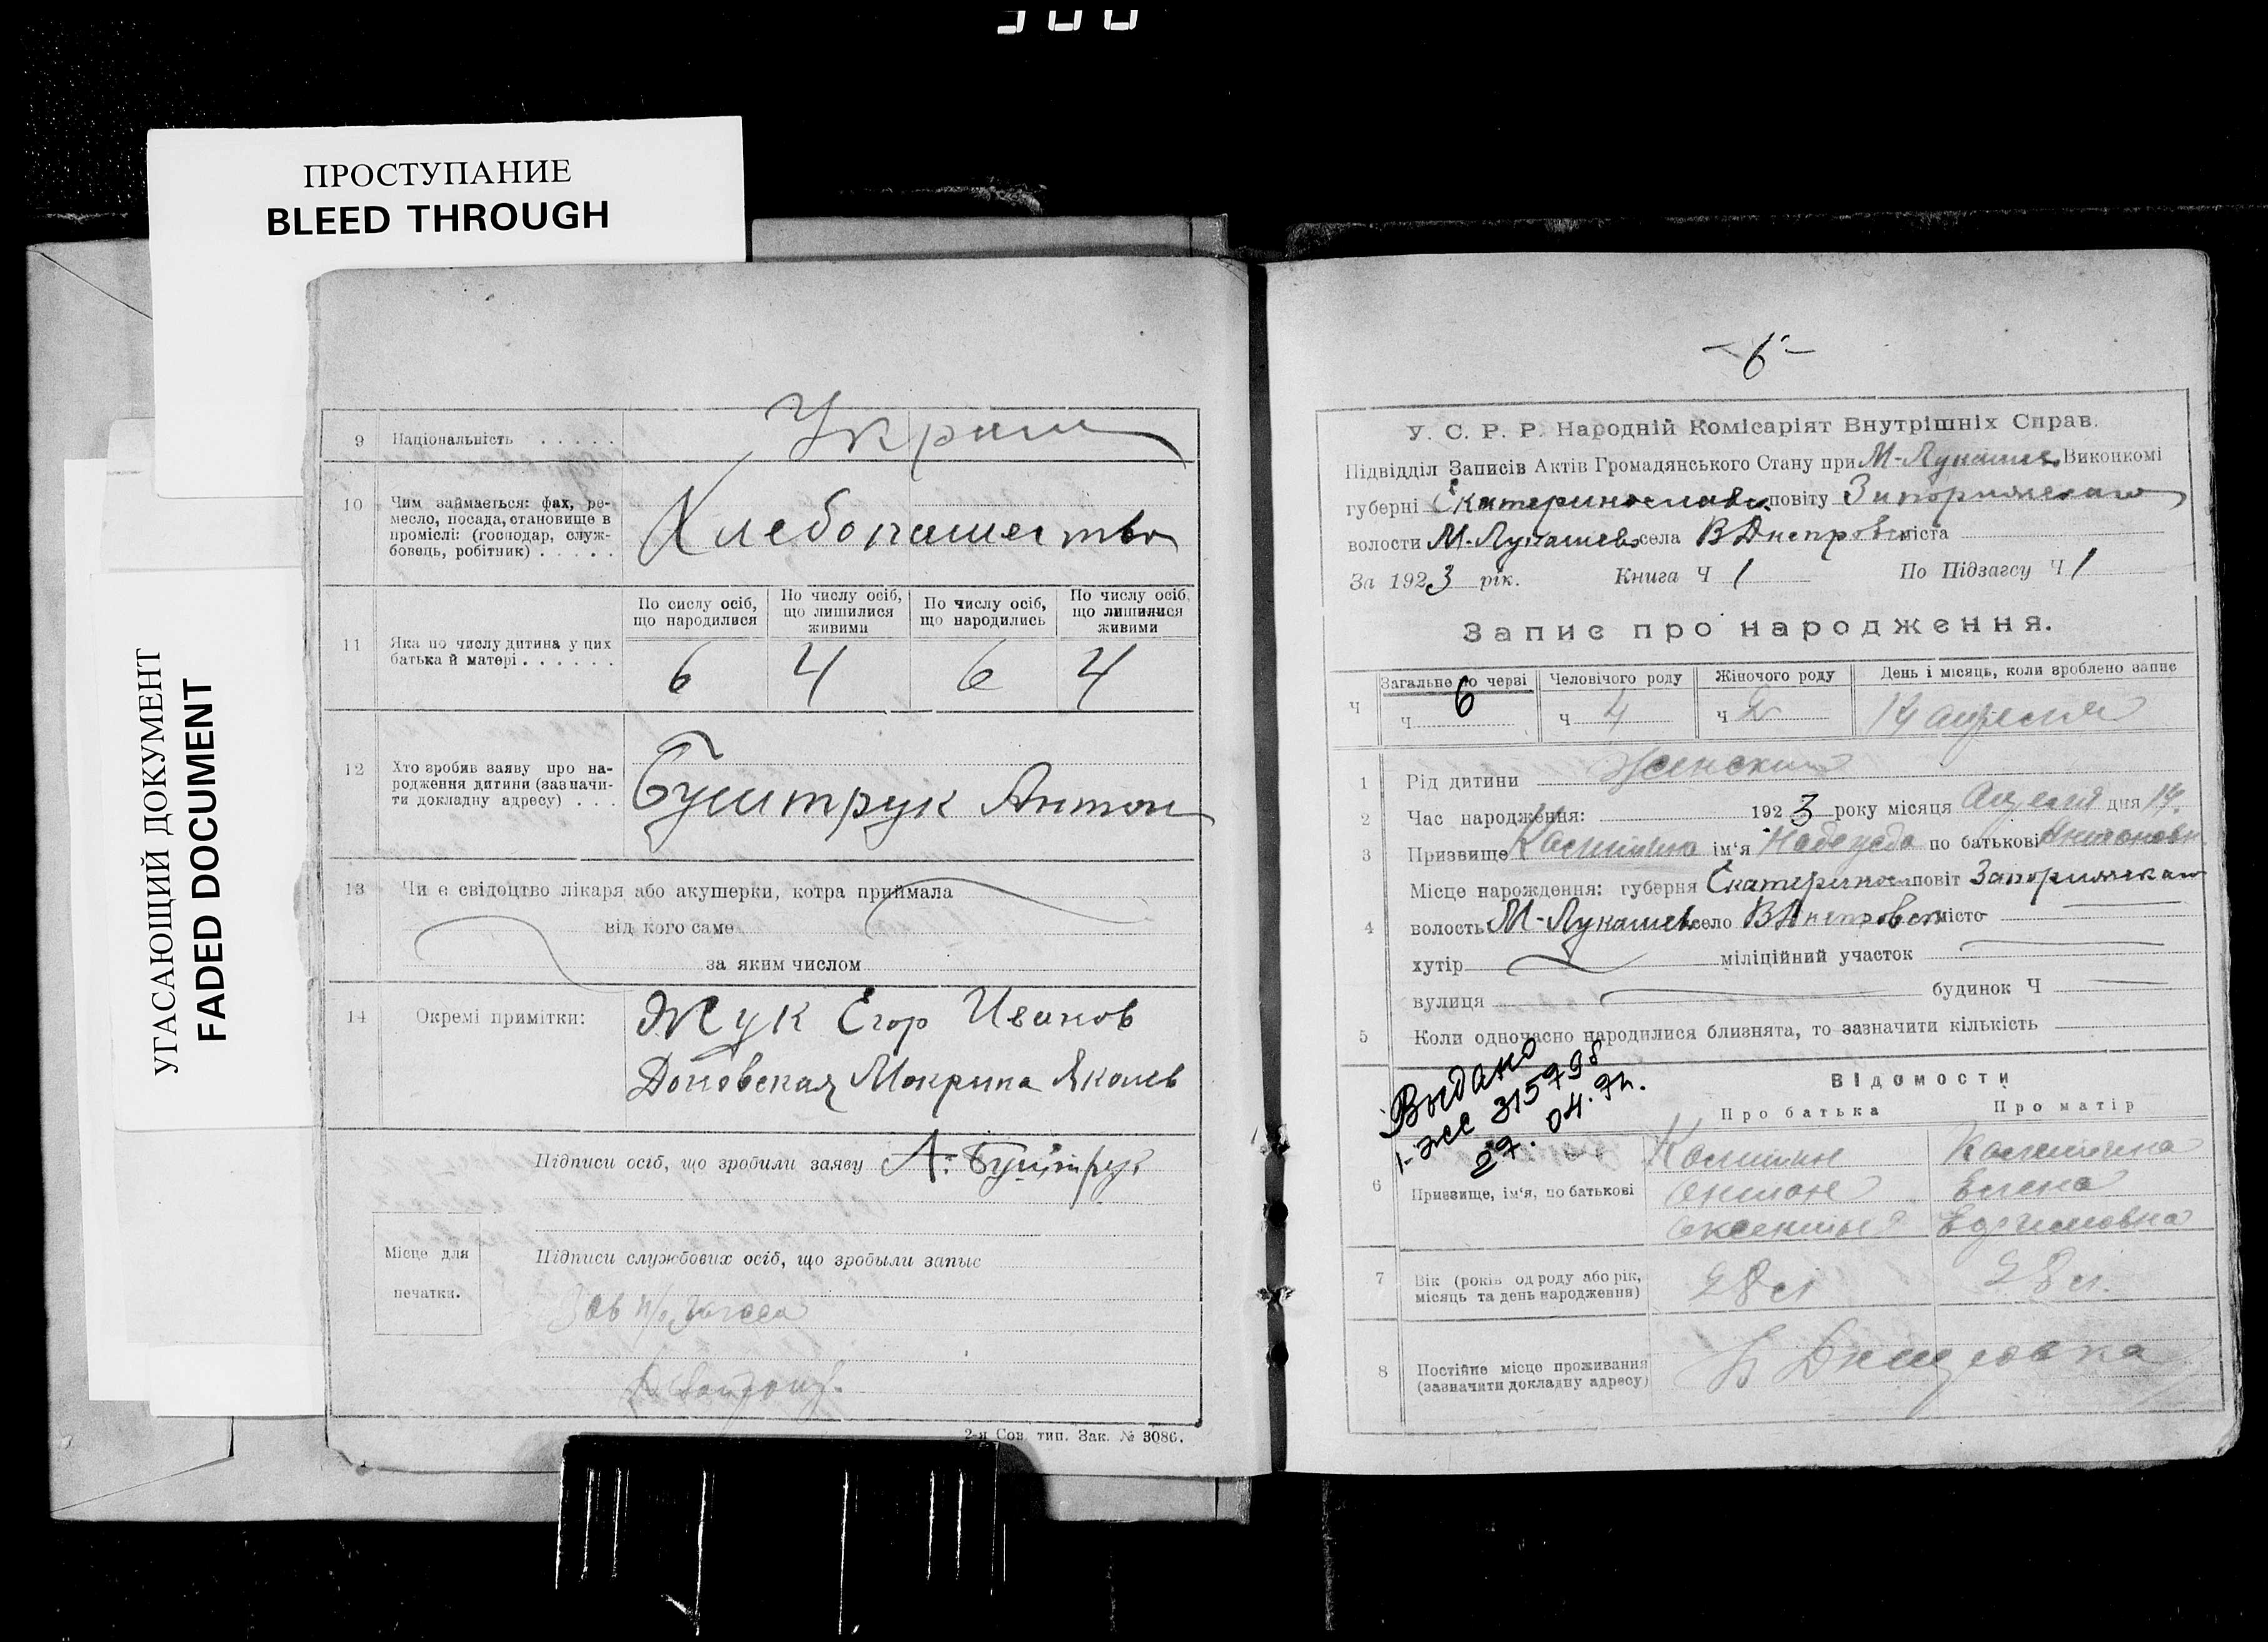 ПРОСТУПАНИЕ
BLEED THROUGH
УГАСАЮЩИЙ ДОКУМЕНТ
FADED DOCUMENT
9 Національність . . . . .
10 Чим займається: фах, ре-
месло, посада, становище в
промислі: (господар, служ-
бовець, робітник) . . . . .
Хлебопашество
11 Яка по числу дитина у цих
батька й матері . . . . . .
По сислу осіб,
що народилися
По числу осіб,
що лишилися
живими
По числу осіб,
що народились
По числу осіб,
що лишилися
живими
6 4 6 4
12 Хто зробив заяву про на-
родження дитини (зазначи-
ти докладну адресу) . . .
Буштрук Антон
13 Чи є свідоцтво лікаря або акушерки, котра приймала
від кого саме
за яким числом
14 Окремі примітки:
Жук Егор Иванов
Мокрина Яковлев
Підписи осіб, що зробили заяву А. Буштрук
Місце для
печатки.
Підписи службових осіб, що зробыли запыс
Зав п/о Загса
2-я Сов. тип. Зак. № 3086.
-6-
У. С. Р. Р. Народній Комісаріят Внутрішніх Справ.
Підвідділ Записів Актів Громадянського Стану при М-Лукашев Виконкомі
губерні Екатеринославс. повіту Запорижскаго
волости М-Лукашевс села В Днепровс міста
За 1923 рік. Книга Ч 1 По Підзагсу Ч 1
Запис про народження.
Ч Загальне по черзі Человічого роду Жіночого роду День і місяць, коли зроблено запис
ч 6 ч 4 ч 2 14 апреля
1 Рід дитини Женский
2 Час народження: 1923 року місяця Апреля дня 14.
3 Призвище ім‘я Надежда по батькові Антоновн
Місце нарождення: губерня Екатеринос повіт Запорижскаго
4 волость М-Лукашевс село В Днепровск місто
хутір міліційний участок
вулиця будинок Ч
5 Коли одночасно народилися близнята, то зазначити кількість
Выдано
1-ЖС 315798
27.04.97г.
Відомости
Про батька Про матір
6 Призвище, ім‘я, по батькові
Антон Елена
Ефимовна
7 Вік (років од роду або рік,
місяць та день народження)
28 л 28 л.
8 Постійне місце проживання
(зазначити докладну адресу)